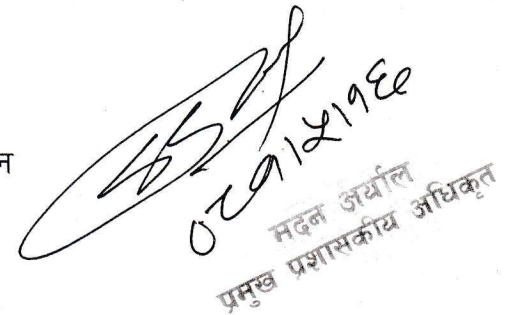 न
०८१।५।१६
मदन अर्याल
प्रमुख प्रशासकीय अधिकृत